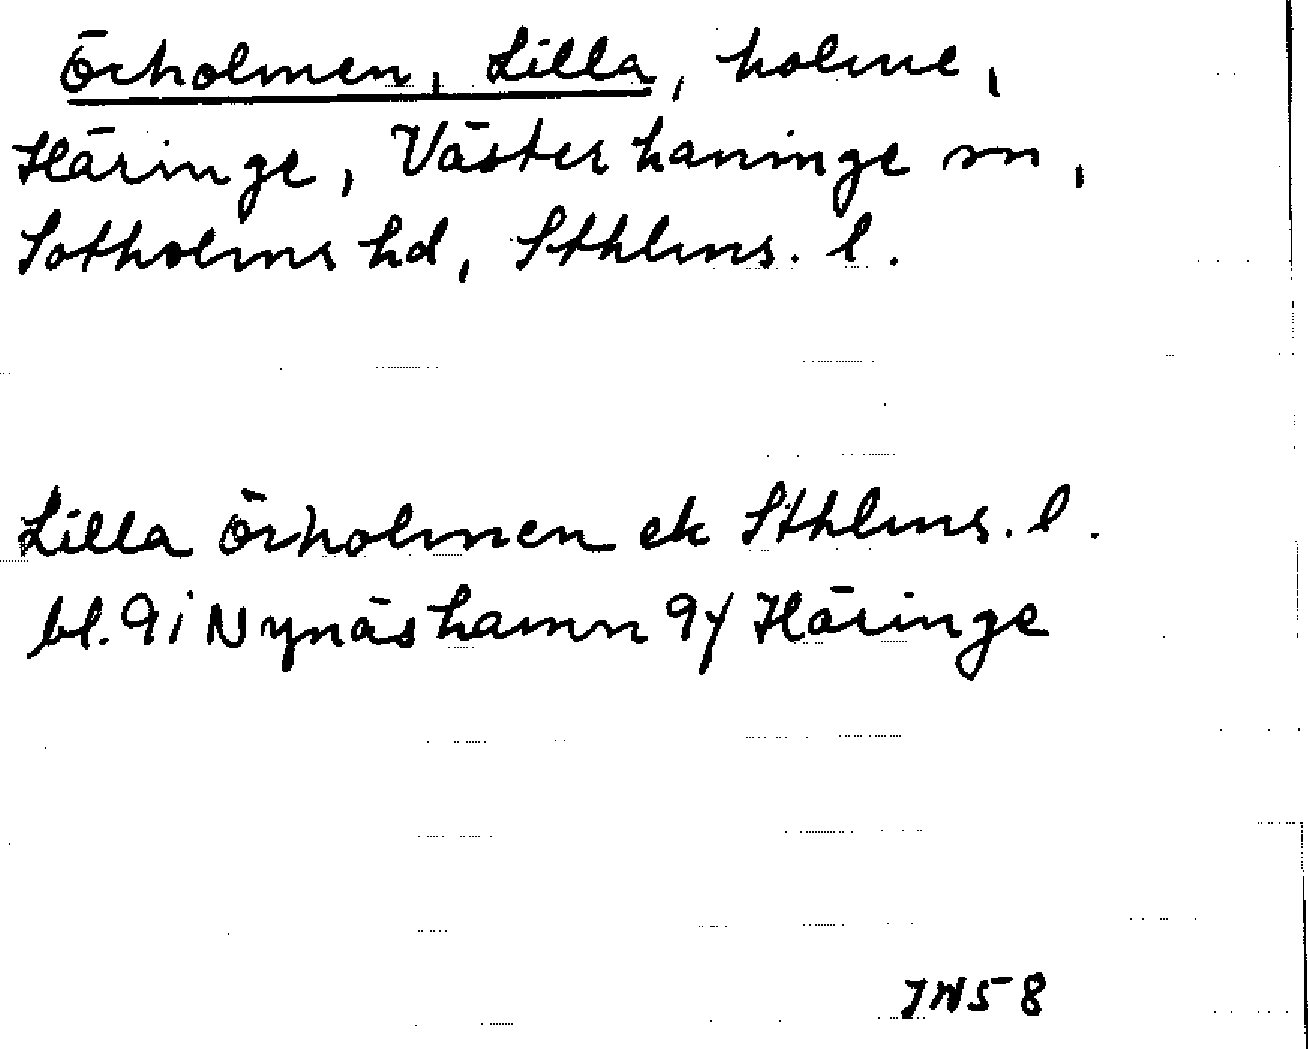 Örholmen, Lilla, holme,
Häringe, Västerhaninge sn,
Sotholms hd, Sthlms. l.
Lilla Örholmen ek Sthlms. l.
bl. 9i Nynäshamn 9y Häringe
JW58